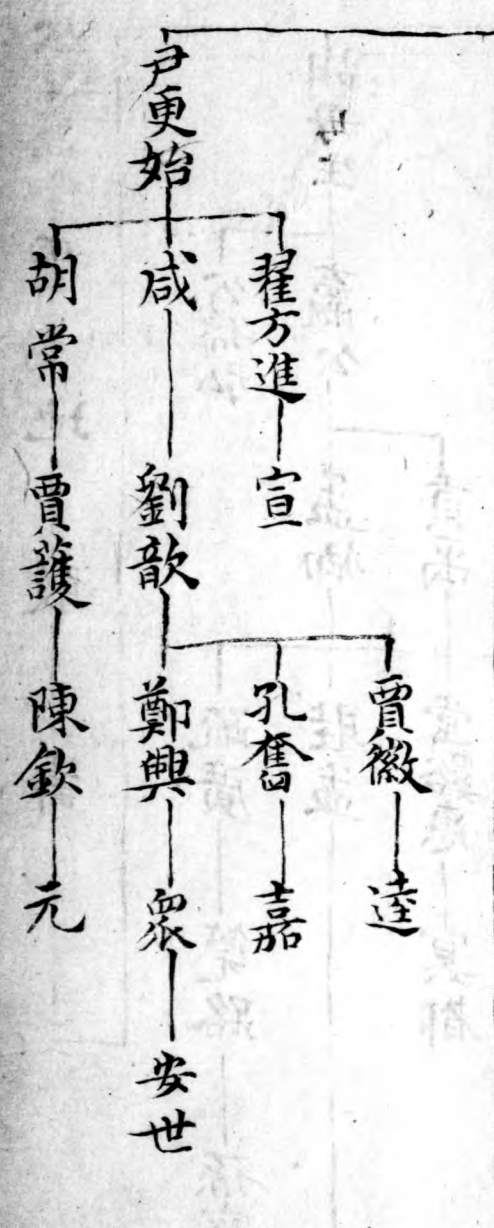 尹更始
翟方進
宣
咸
劉歆
賈徽
逵
孔奮
嘉
鄭興
眾
安世
胡常
賈護
陳欽
元